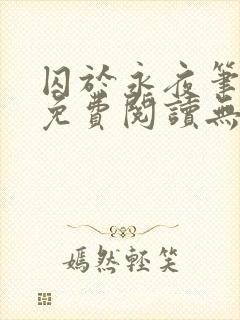 囚於永夜筆
免費閱讀無
嫣然輕笑